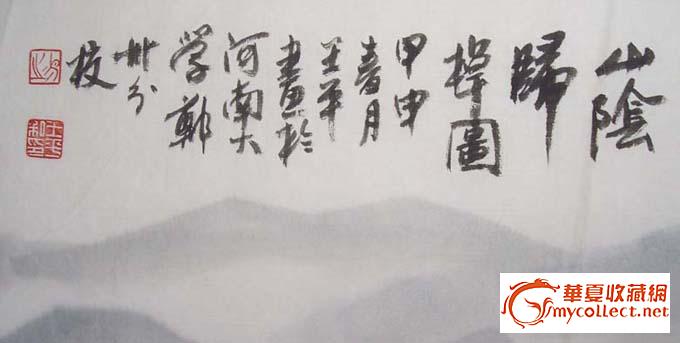 山陰
歸
棹圖
甲申
春月
王平
畫於
河南大
學鄭
州分
校
華夏收藏網
mycollect.net